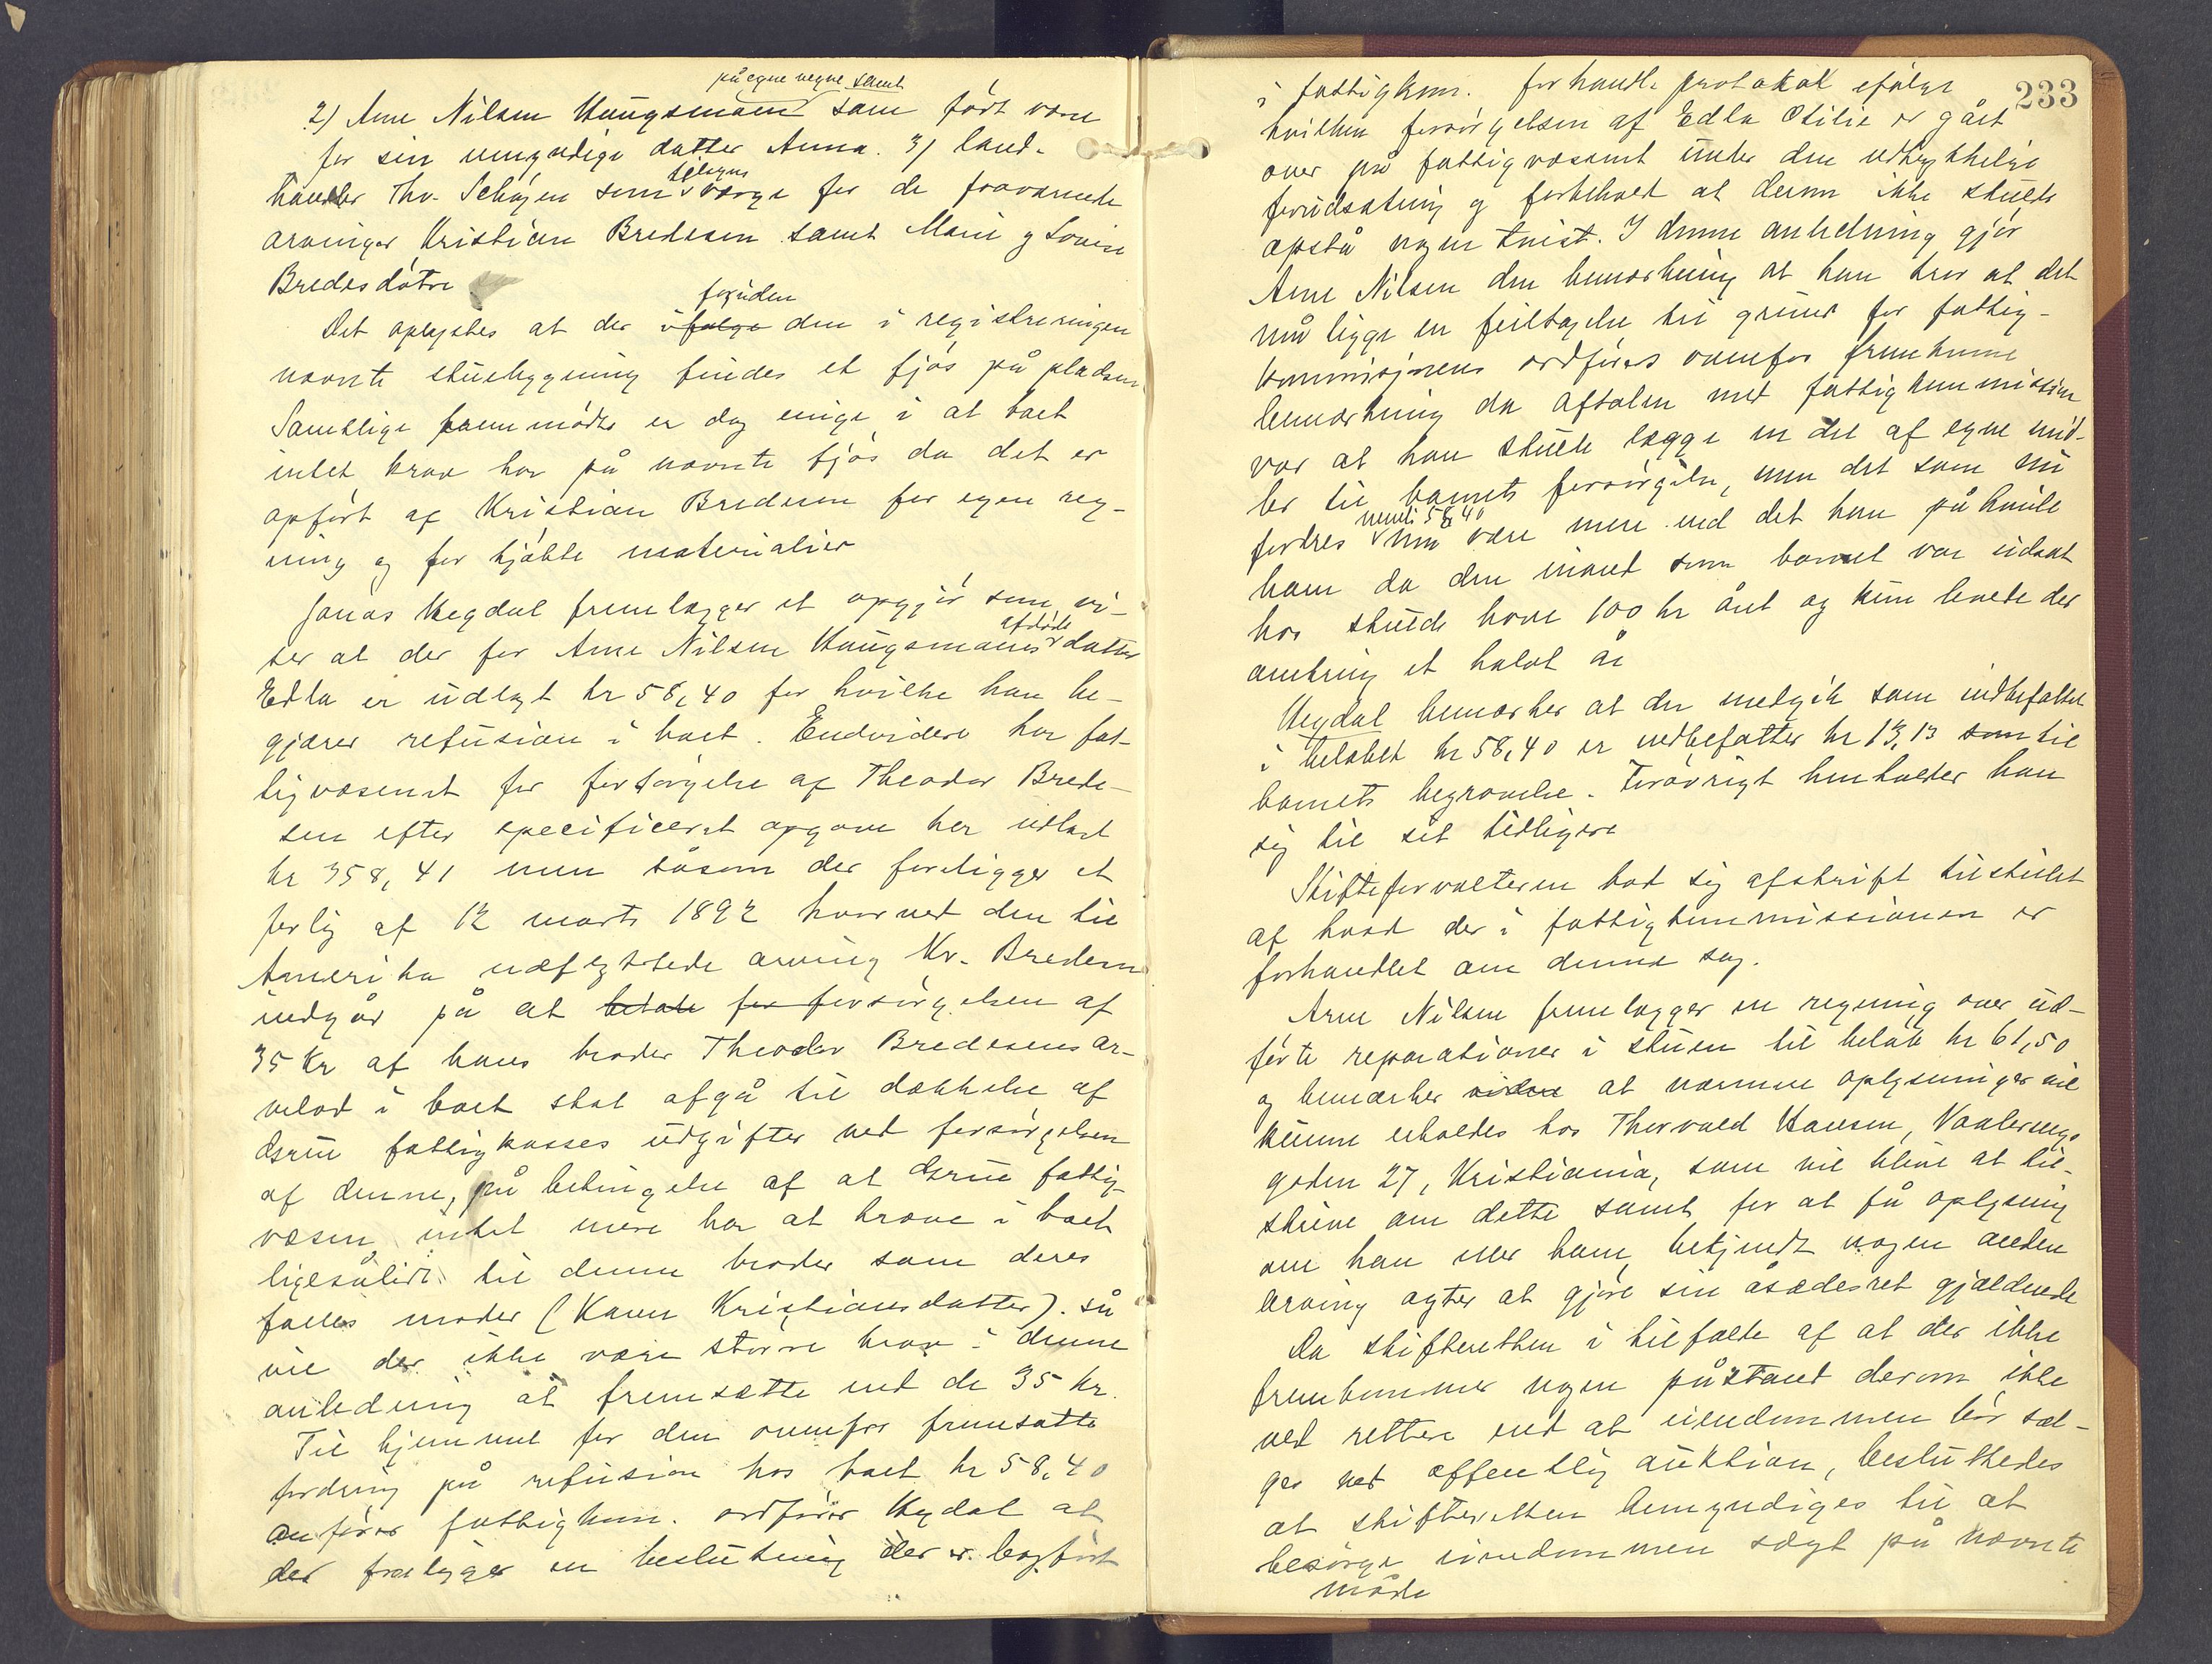 på egne vegne samt
2) Arne Nilsen Haugsmoen som født værge
for sin umyndige datter Anna. 3) land-
handler Thv. Schøyen som tilsyns værge for de fraværende
arvinger Kristian Bredesen samt Marie og Lovise
Bredesdøtre
Det oplystes at der ifølge foruden den i registreringen
nævnte stuebygning findes et fjøs på pladsen
Samtlige fremmødte er dog enige i at boet
intet krav har på nævnte fjøs da det er
opført af Kristian Bredesen for egen reg-
ning og for kjøbte materialier
Jonas Hegdal fremlægger et opgjør som vi-
ser at der for Arne Nilsen Haugsmoens afdøde datter
Edla er udlagt kr 58,40 for hvilke han be-
gjærer refusion i boet. Endvidere har fat-
tigvæsenet for forsørgelse af Theodor Brede-
sen efter specificeret opgave her udlagt
kr 358,41 men såsom der foreligger et
forlig af 12 marts 1892 hvorved den til
Amerika udflyttede arving Kr. Bredesen
indgår på at betale for forsørgelsen af
35 kr af hans broder Theodor Bredesens ar-
velod i boet skal afgå til dækkelse af
fattigkasses udgifter ved forsørgelsen
af denne, på betingelse af at fattig-
væsen intet mere har at kræve i boet
ligesålidt til denne broder som deres
fælles moder (Karen Kristiansdatter). så
vil der ikke være større krav i denne
anledning at fremsætte end de 35 kr.
Til hjemmel for den ovenfor fremsatte
fordring på refusion hos boet kr 58,40
anfører fattigkom. ordfører Hegdal at
der foreligger en beslutning der er bogført
233
i fattigkom. forhandl. protokol ifølge
hvilken forsørgelsen af Edla Otilie er gået
over på fattigvæsenet under den udtrykkelige
forudsætning og forbehold at derom ikke skulde
opstå nogen tvist. I denne anledning gjør
Arne Nilsen den bemærkning at han tror at det
må ligge en feiltagelse til grund for fattig-
kommisjonens ordførers ovenfor fremkomne
bemærkning da aftalen med fattigkommissionen
var at han skulde lægge en del af egne mid-
ler til barnets forsørgelse, men det som nu
fordres nemli 58,40 må være mere end det han på hvile
ham da den mand som barnet var udsat
hos skulde have 100 kr året og kun levede der
omkring et halvt år
Hegdal bemærker at der medgik som indbefattet
i beløbet kr 58,40 er indbefattet kr 13,13 som til
barnets begravelse. Forøvrigt henholder han
sig til sit tidligere
Skifteforvalteren bad sig afskrift tilstillet
af hvad der i fattigkommissionen er
forhandlet om denne sag.
Arne Nilsen fremlægger en regning over ud-
førte reparationer i stuen til beløb kr 61,50
og bemærker videre at nærmere oplysninger vil
kunne erholdes hos Thorvald Hansen, Vaalerengs
gaden 27, Kristiania, som vil blive at til-
skrive om dette samt for at få oplysning
om han eller ham bekjendt nogen anden
arving agter at gjøre sin åsædesret gjældende
Da skifteretten i tilfælde af at der ikke
fremkommer nogen påstand derom ikke
ved rettere end at eiendommen bør sæl-
ges ved offentlig auktion, besluttedes
at skifteretten bemyndiges til at
besørge eiendommen solgt på nævnte
måde